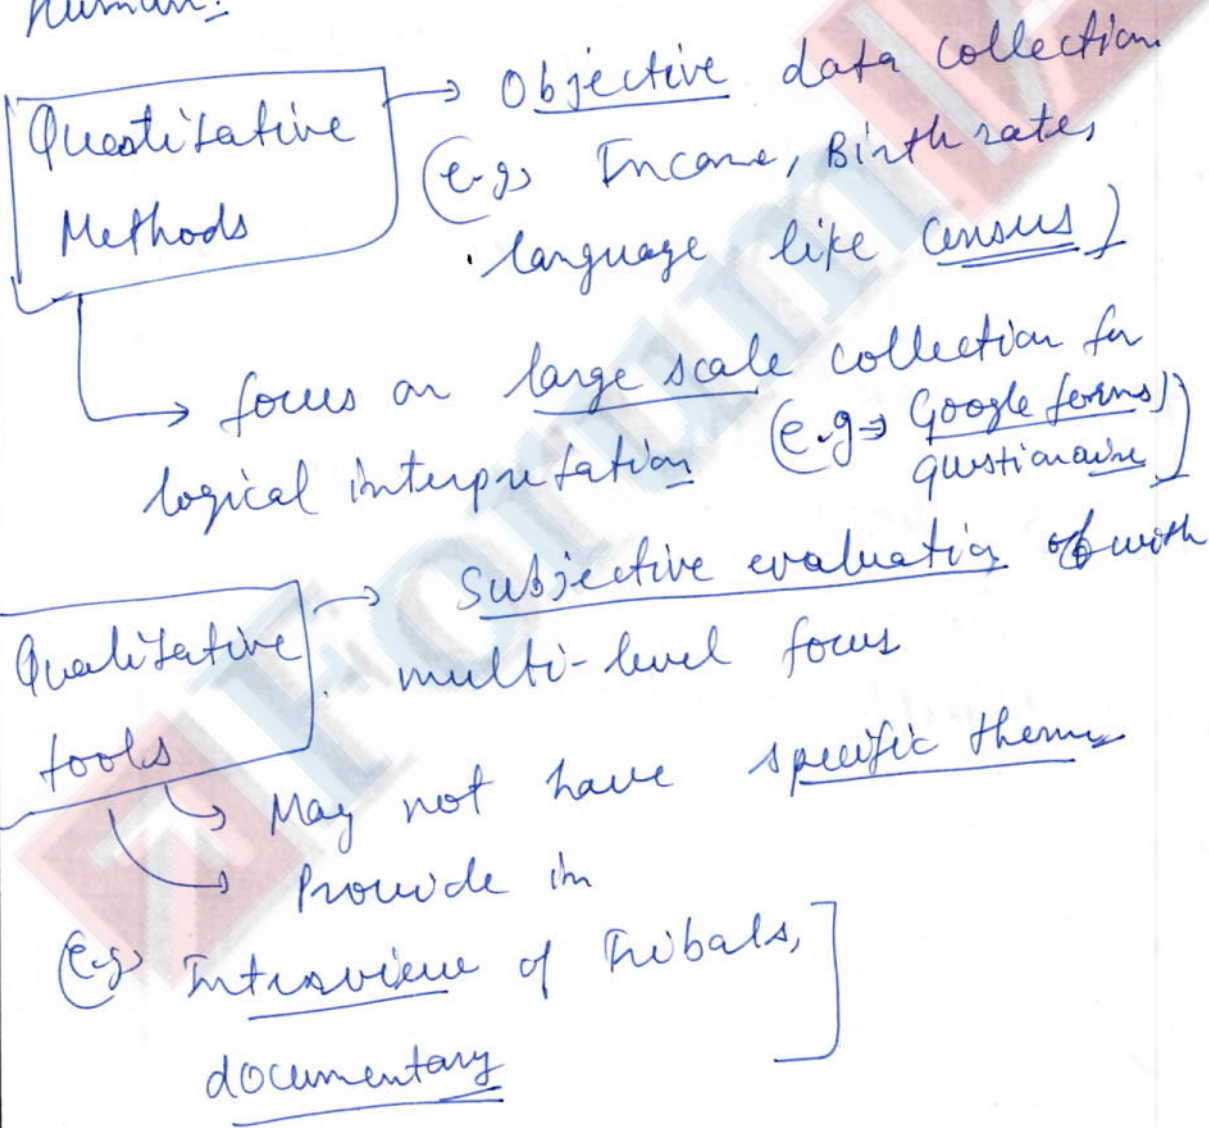 human.
Quantitative
Methods
→ Objective data collection
(e.g. Income, Birth rates,
language like Census)
→ focus on large scale collection for
logical interpretation (e.g → Google forms,
questionaire)
Qualitative
tools
→ Subjective evaluation of with
multi-level focus
→ May not have specific themes
→ Provide in
(e.g. Interview of Tribals,
documentary]
Forum